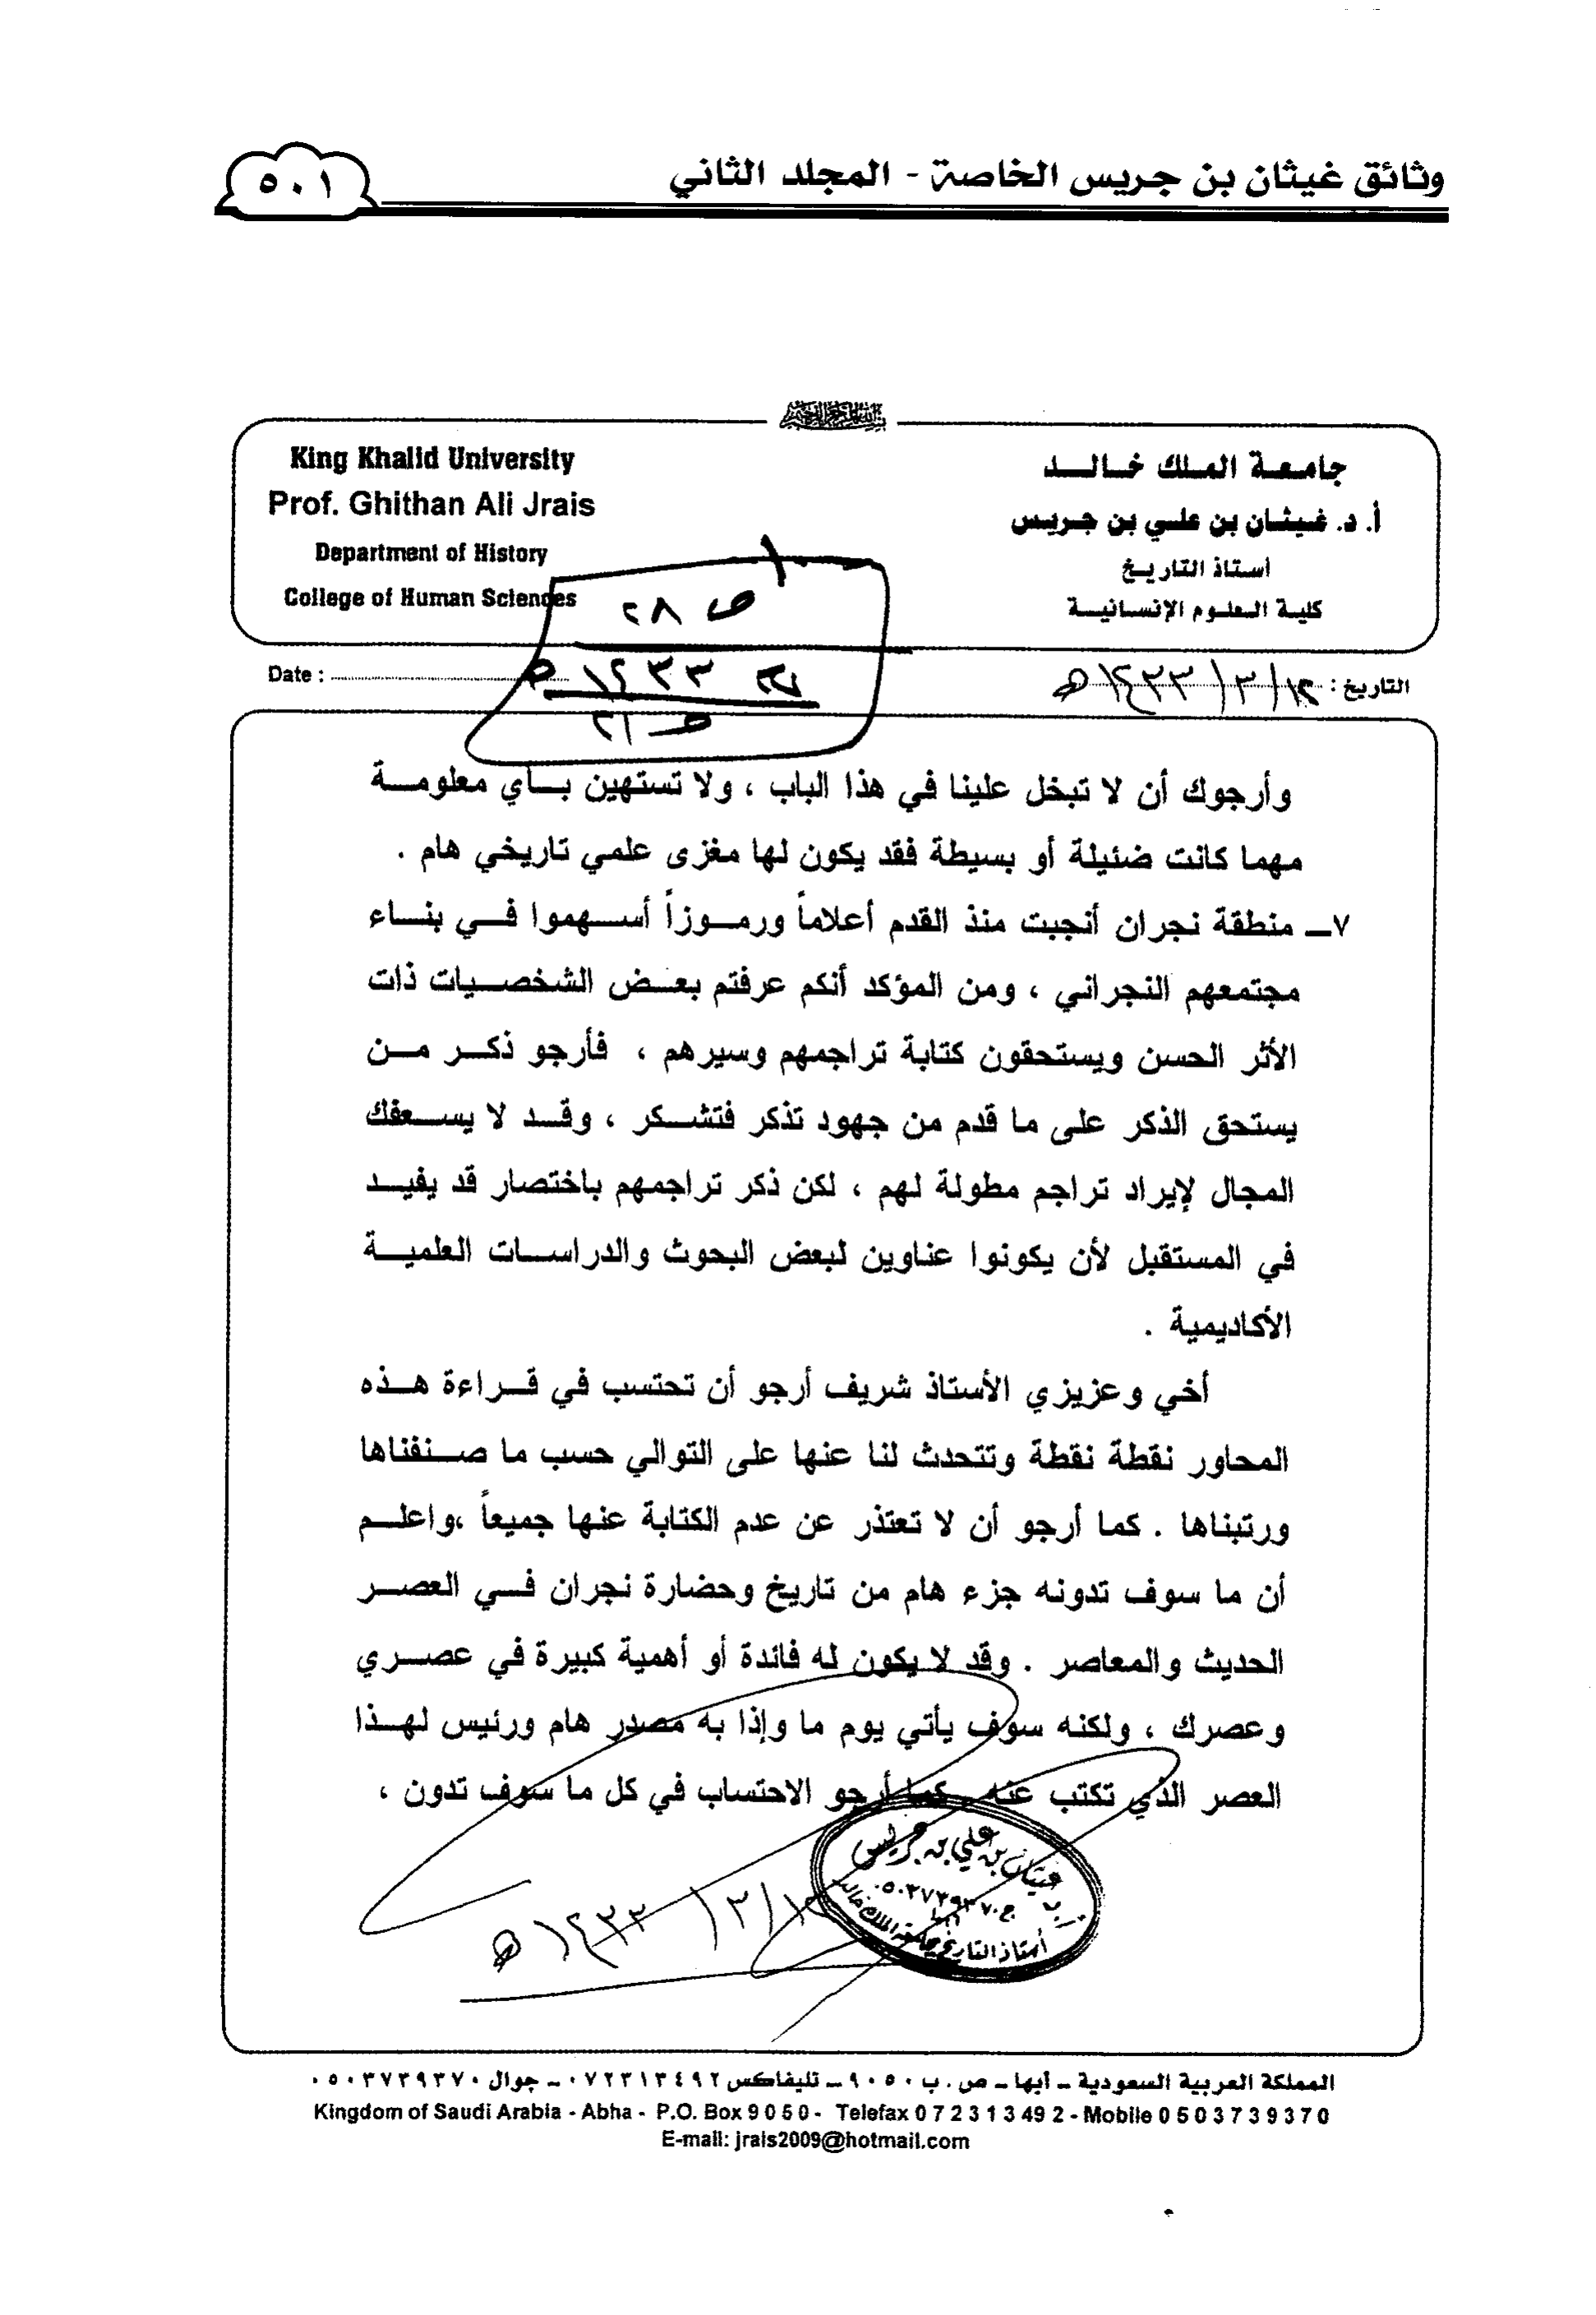 وثائق غيثان بن جريس الخاصة - المجلد الثاني
٥٠١
جامعة الملك خالد
أ. د. غيثان بن علي بن جريس
أستاذ التاريخ
كلية العلوم الإنسانية
King Khalid University
Prof. Ghithan Ali Jrais
Department of History
College of Human Sciences
ص ٢٨
١٤٣٣ هـ
ص ٢١
التاريخ : ١٢/٣/١٤٣٣هـ
Date :
وأرجوك أن لا تبخل علينا في هذا الباب ، ولا تستهين بأي معلومة
مهما كانت ضئيلة أو بسيطة فقد يكون لها مغزى علمي تاريخي هام .
٧ـ منطقة نجران أنجبت منذ القدم أعلاماً ورموزاً أسهموا في بناء
مجتمعهم النجراني ، ومن المؤكد أنكم عرفتم بعض الشخصيات ذات
الأثر الحسن ويستحقون كتابة تراجمهم وسيرهم ، فأرجو ذكر من
يستحق الذكر على ما قدم من جهود تذكر فتشكر ، وقد لا يسعفك
المجال لإيراد تراجم مطولة لهم ، لكن ذكر تراجمهم باختصار قد يفيد
في المستقبل لأن يكونوا عناوين لبعض البحوث والدراسات العلمية
الأكاديمية .
أخي وعزيزي الأستاذ شريف أرجو أن تحتسب في قراءة هذه
المحاور نقطة نقطة وتتحدث لنا عنها على التوالي حسب ما صنفناها
ورتبناها . كما أرجو أن لا تعتذر عن عدم الكتابة عنها جميعاً ،واعلم
أن ما سوف تدونه جزء هام من تاريخ وحضارة نجران في العصر
الحديث والمعاصر . وقد لا يكون له فائدة أو أهمية كبيرة في عصري
وعصرك ، ولكنه سوف يأتي يوم ما وإذا به مصدر هام ورئيس لهذا
العصر الذي تكتب عنه . كما أرجو الاحتساب في كل ما سوف تدون ،
غيثان بن علي بن جريس
ج ٠٥٠٣٧٣٩٣٧٠
أبها
أستاذ التاريخ جامعة الملك خالد
/٣/١٤٣٣هـ
المملكة العربية السعودية ـ أبها ـ ص . ب ٩٠٥٠ ـ تليفاكس ٠٧٢٣١٣٤٩٢ ـ جوال ٠٥٠٣٧٣٩٣٧٠
Kingdom of Saudi Arabia - Abha - P.O. Box 9 0 5 0 - Telefax 0 7 2 3 1 3 49 2 - Mobile 0 5 0 3 7 3 9 3 7 0
E-mail: jrais2009@hotmail.com